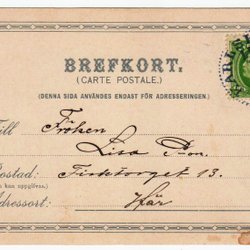 BREFKORT.
(CARTE POSTALE.)
(DENNA SIDA ANVÄNDES ENDAST FÖR ADRESSERINGEN.)
Till Fröken
Lisa
Postad: Fisktorget 13.
kan uppgifvas.)
Adressort: Här